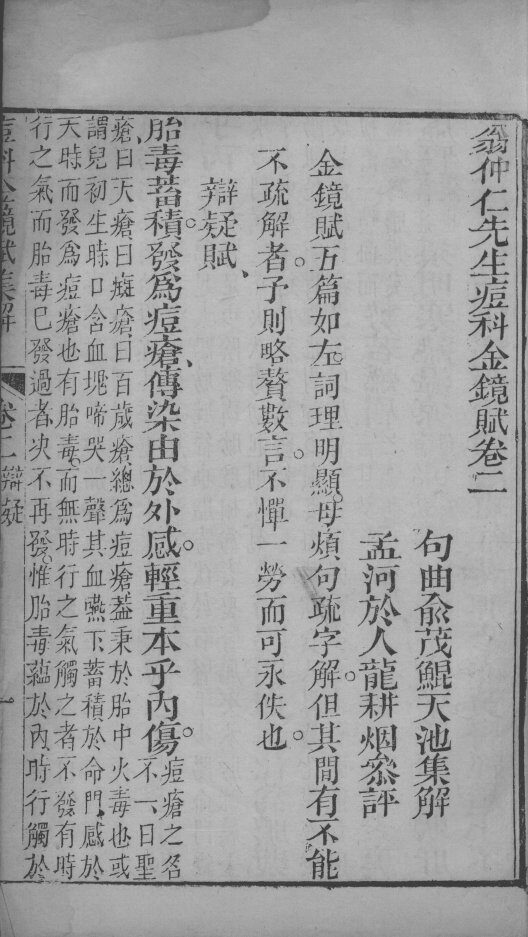 翁仲仁先生痘科金鏡賦卷二
句曲俞茂鯤天池集解
孟河於人龍耕烟叅評
金鏡賦五篇如左詞理明顯毋煩句疏字解但其間有不能
不疏解者予則略贅數言不憚一勞而可永佚也
辯疑賦
胎毒蓄積發爲痘瘡傳染由於外感輕重本乎内傷痘瘡之名
不一曰聖
瘡曰天瘡曰癡瘡曰百歲瘡總爲痘瘡葢秉於胎中火毒也或
謂兒初生時口含血塊啼哭一聲其血嚥下蓄積於命門感於
天時而發爲痘瘡也有胎毒而無時行之氣觸之者不發有時
行之氣而胎毒已發過者決不再發惟胎毒蘊於内時行觸於
痘科金鏡賦集解 卷二 辯疑 一